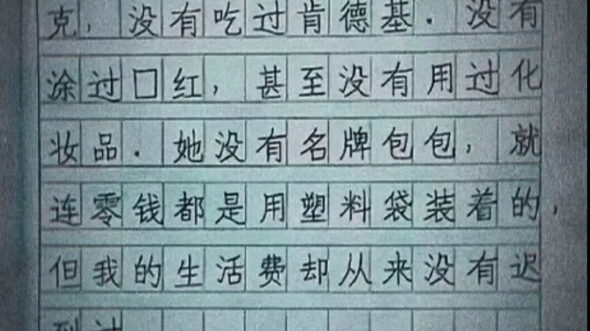 克，没有吃过肯德基．没有
涂过口红，甚至没有用过化
妆品．她没有名牌包包，就
连零钱都是用塑料袋装着的，
但我的生活费却从来没有迟
到过